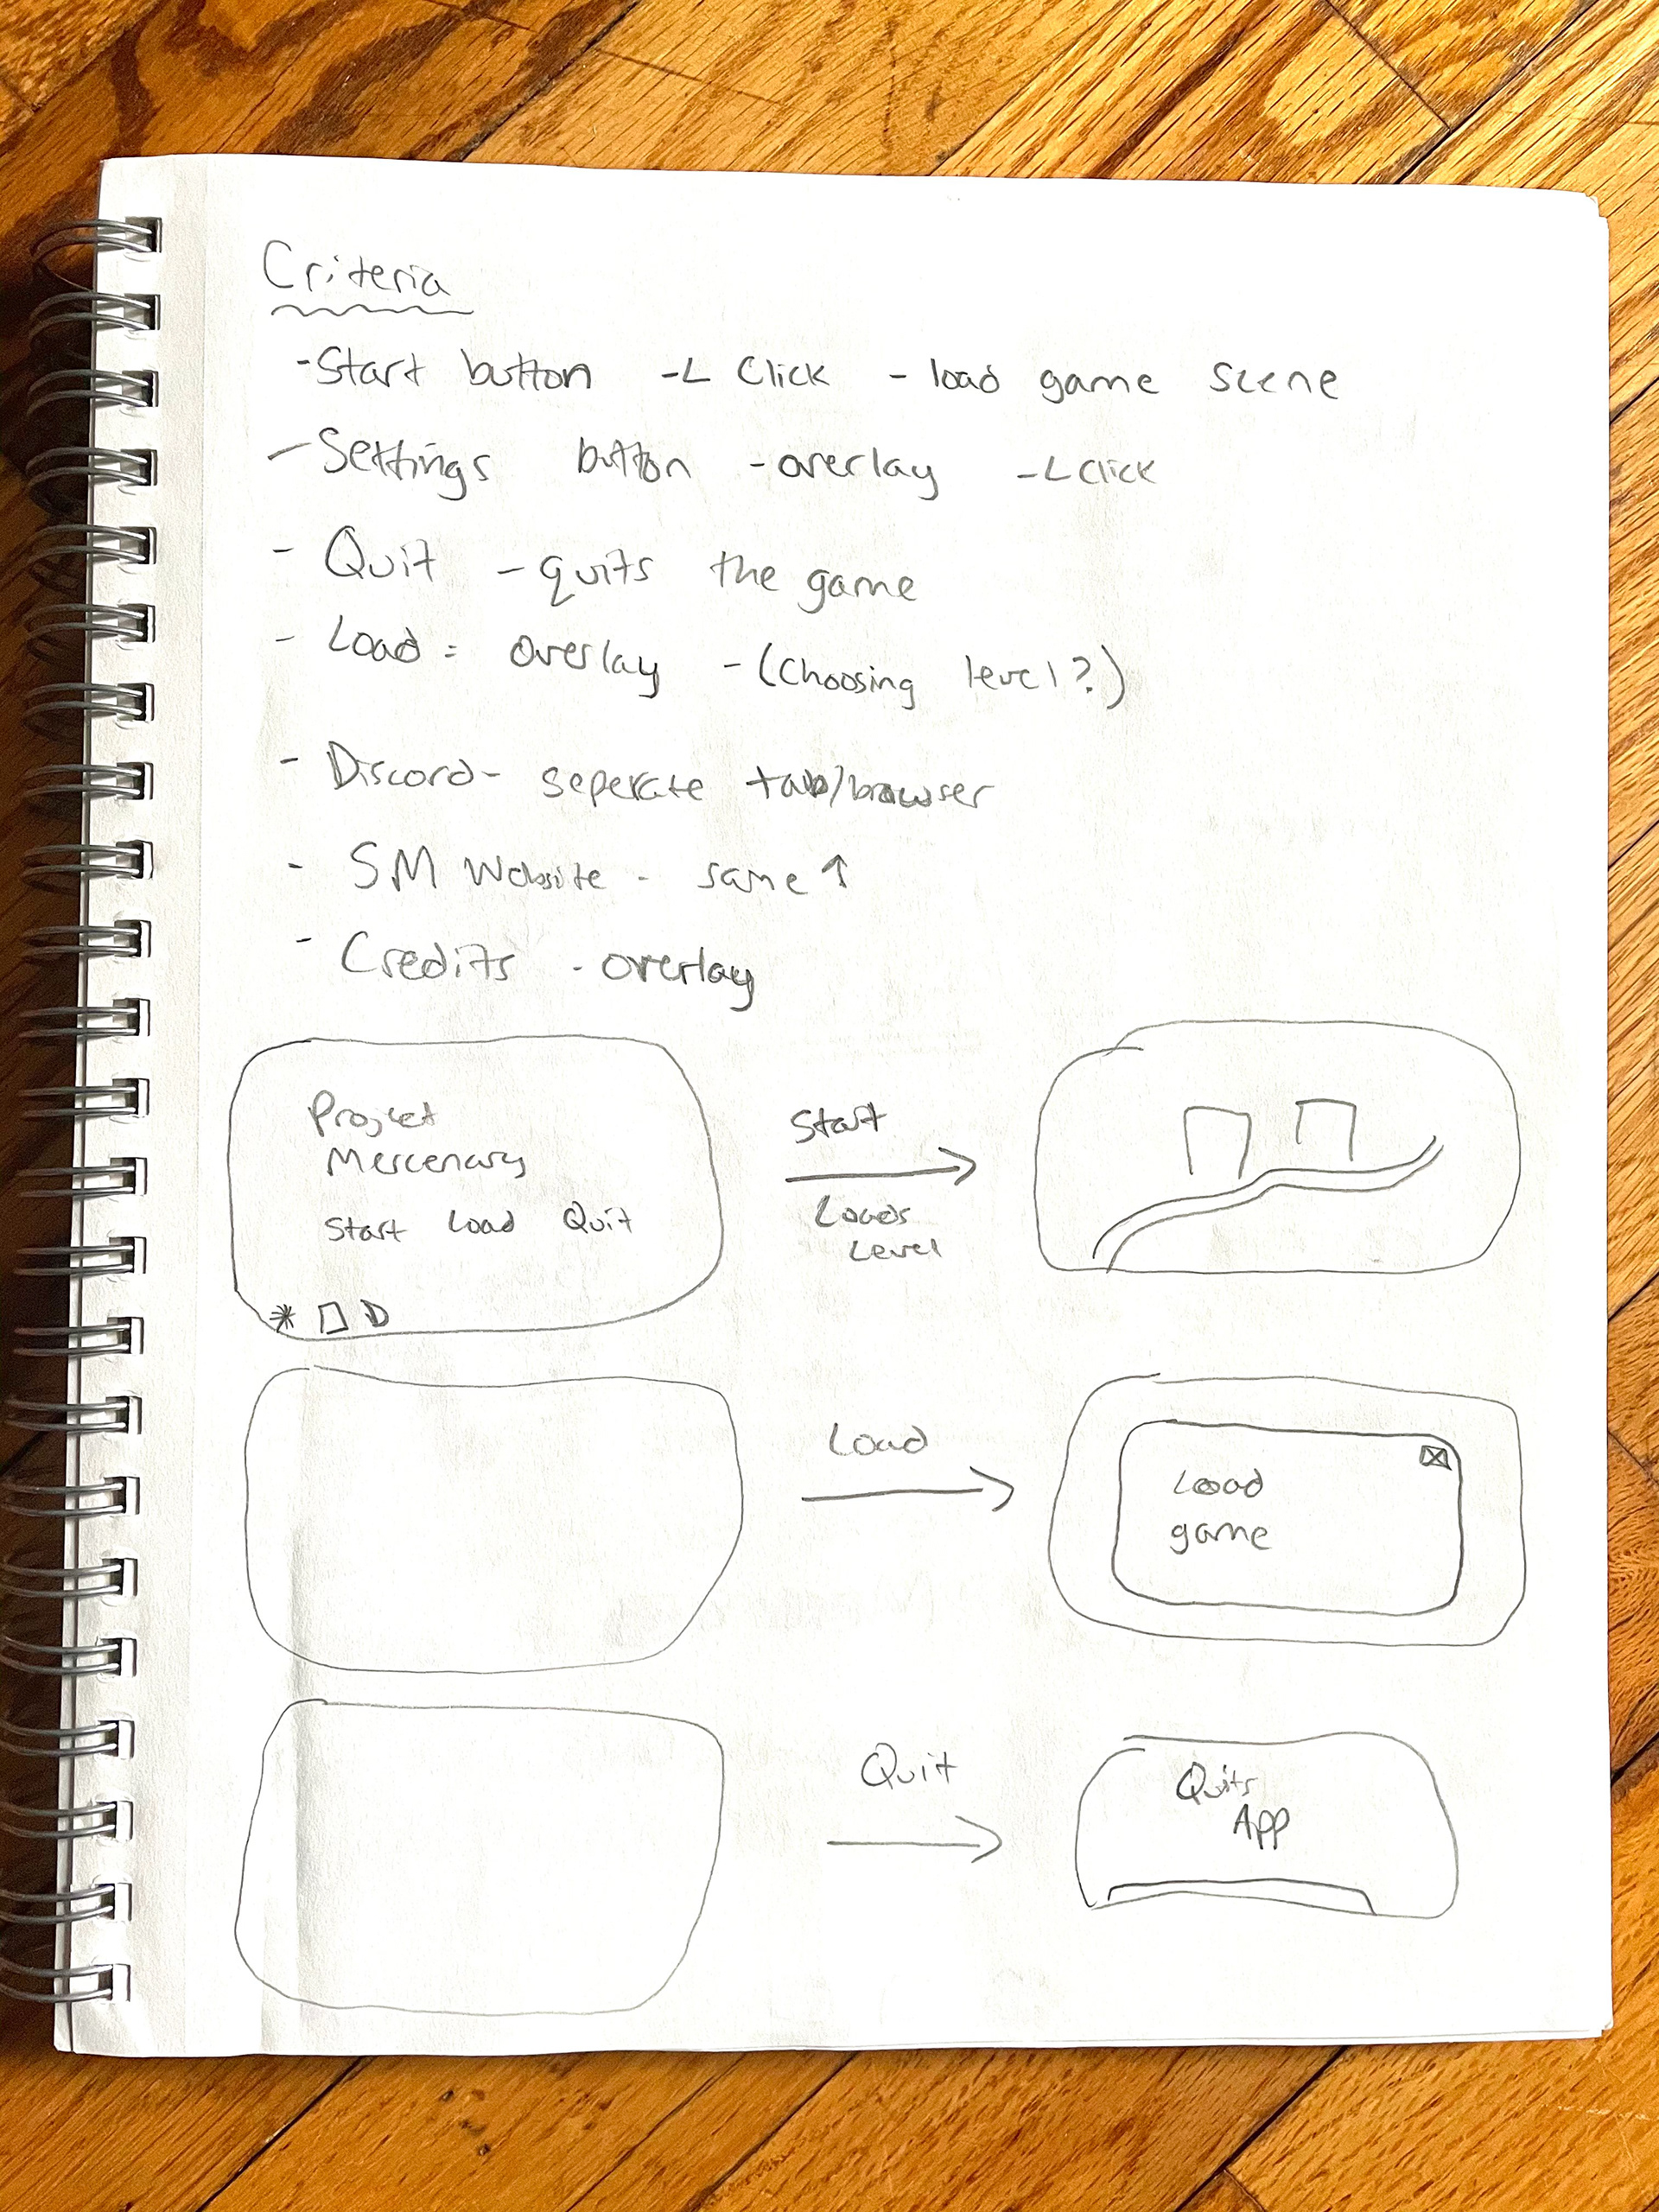 Criteria
-Start button -L Click - load game scene
-Settings button -overlay -L Click
- Quit - quits the game
- Load = overlay -(Choosing level?)
- Discord- seperate tab/browser
- SM Website - same ↑
- Credits - overlay
Project
Mercenary
Start Load Quit
* D
Start
Loads
Level
Load
Load
game
Quit
Quits
App